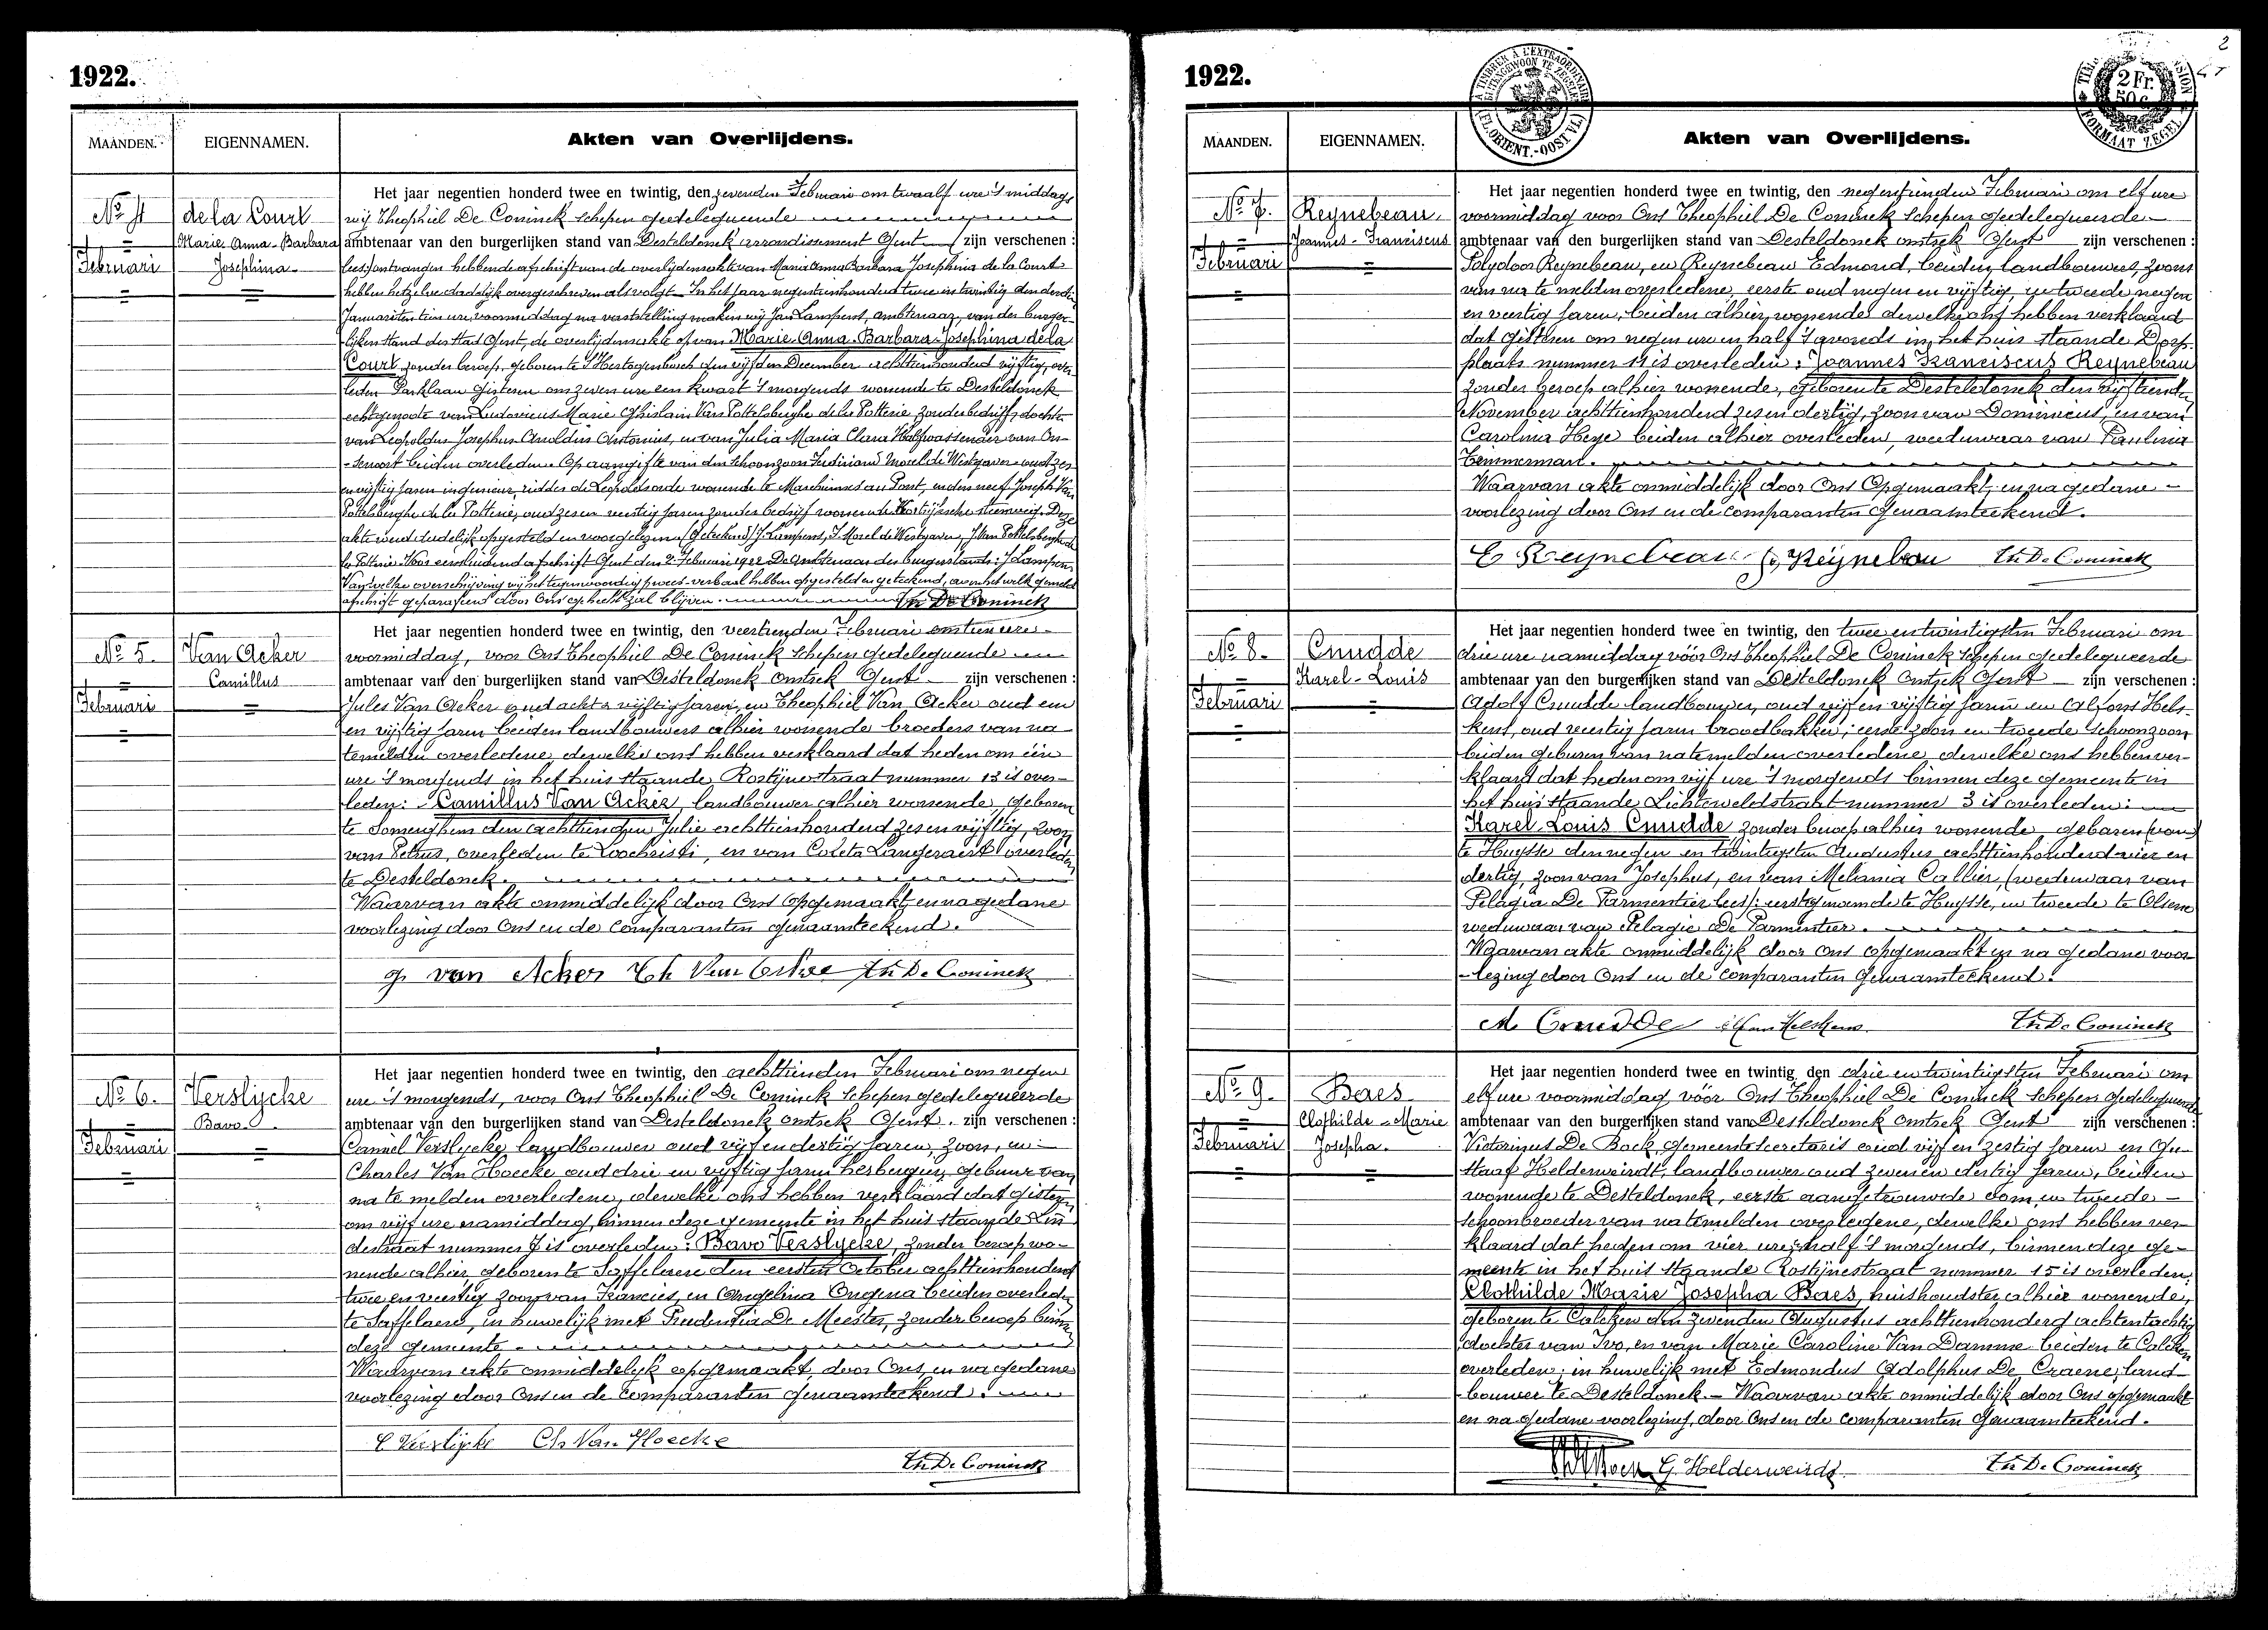 1922.
MAANDEN. EIGENNAMEN. Akten van Overlijdens.
No 4 de la Court
Marie Anna-Barbara
Februari Josephina
Het jaar negentien honderd twee en twintig, den zevenden Februari om twaalf ure 's middags
wij Theophiel De Coninck schepen gedelegueerde
ambtenaar van den burgerlijken stand van Desteldonck arrondissement Gent zijn verschenen :
(lees) ontvangen hebbende afschrift van de overlijdensakte van Maria Anna Barbara Josephina de la Court
hebben hetzelve dadelijk overgeschreven als volgt. In het jaar negentienhonderd twee en twintig den derden
Januari ten tien ure voormiddag na vaststelling maken wij Jan Lampens, ambtenaar van den burger-
lijken stand der stad Gent, de overlijdensakte op van Marie-Anna-Barbara-Josephina de la
Court zonder beroep, geboren te 's Hertogenbosch den vijfden December achttienhonderd vijftig, over
leden Parklaan gisteren om zeven ure een kwart 's morgends wonende te Desteldonck
echtgenoote van Ludovicus Marie Ghislain Van Pottelsberghe de la Potterie, zonder bedrijf, dochter
van Leopoldus Josephus Arnoldus Antonius, en van Julia Maria Clara Halfwassenaer van On-
senoort beiden overleden. Op aangifte van den schoonzoon Ferdinand Morel de Westgaver oud zes
en vijftig jaren ingenieur, ridder de Leopoldsorde wonende te Marchienne au Pont, en den neef Joseph Van
Pottelsberghe de la Potterie, oud zes en veertig jaren zonder bedrijf wonende Kortrijksche steenweg. Deze
akte werd dadelijk opgesteld en voorgelezen (Geteekend) J. Lampens, F. Morel de Westgaver, J. Van Pottelsberghe de
la Potterie. Voor eensluidend afschrift Gent den 2 Februari 1922 De Ambtenaar des burgerstands: J. Lampens
Van welke overschrijving wij het tegenwoordig proces-verbaal hebben opgesteld en geteekend, waaraan het welk gemeld
afschrift geparafeerd door Ons gehecht zal blijven. Th De Coninck
No 5. Van Acker
Camillus
Februari
Het jaar negentien honderd twee en twintig, den veertienden Februari om tien ure
voormiddag, voor Ons Theophiel De Coninck schepen gedelegueerde
ambtenaar van den burgerlijken stand van Desteldonck omtrek Gent zijn verschenen :
Jules Van Acker oud acht en vijftig jaren, en Theophiel Van Acker oud een
en vijftig jaren beiden landbouwers alhier wonende broeders van na
temelden overledene dewelke ons hebben verklaard dat heden om één
ure 's morgends in het huis staande Rostijnestraat nummer 13 is over-
leden: Camillus Van Acker, landbouwer alhier wonende, geboren
te Somerghem den achttienden Julie achttienhonderd zes en vijftig, zoon
van Petrus, overleden te Loochristi, en van Coleta Langeraert overleden
te Desteldonck.
Waarvan akte onmiddelijk door Ons opgemaakt en na gedane
voorlezing door Ons en de comparanten genaamteekend.
J. van Acker Th Van Acker Th De Coninck
No 6. Verslijcke
Bavo
Februari
Het jaar negentien honderd twee en twintig, den achttienden Februari om negen
ure 's morgends, voor Ons Theophiel De Coninck Schepen gedelegueerde
ambtenaar van den burgerlijken stand van Desteldonck omtrek Gent. zijn verschenen :
Camiel Verslijcke landbouwer oud vijf en dertig jaren, zoon, en
Charles Van Hoecke oud drie en vijftig jaren herbergier, gebuur van
na te melden overledene, dewelke ons hebben verklaard dat gisteren
om vijf ure namiddag, binnen deze gemeente in het huis staande Lin
destraat nummer 7 is overleden: Bavo Verslycke, zonder beroep wo-
nende alhier, geboren te Saffelaere den eersten October achttienhonderd
twee en veertig zoon van Francies, en Angelina Ongena beiden overleden
te Saffelaere, in huwelijk met Prudentia De Meester, zonder beroep binnen
deze gemeente
Waarvan akte onmiddelijk opgemaakt, door Ons, en na gedane
voorlezing door Ons en de comparanten genaamteekend.
C Verslijcke Ch Van Hoecke
Th De Coninck
1922.
2
A TIMBRER A L'EXTRAORDINAIRE
(FL. ORIENT.-OOST VL.)
2 Fr.
50 c
FORMAAT ZEGEL
MAANDEN. EIGENNAMEN. Akten van Overlijdens.
No 7. Reynebeau,
Joannes-Franciscus
Februari
Het jaar negentien honderd twee en twintig, den negentienden Februari om elf ure
voormiddag voor Ons Theophiel De Coninck Schepen gedelegueerde
ambtenaar van den burgerlijken stand van Desteldonck omtrek Gent zijn verschenen :
Polydoor Reynebeau, en Reynebeau Edmond, beiden landbouwers, zoons
van na te melden overledene, eerste oud negen en vijftig, en tweede negen
en veertig jaren, beiden alhier, wonende dewelke ons hebben verklaard
dat gisteren om negen ure en half 's avonds in het huis staande Dorp-
plaats nummer 11 is overleden: Joannes Franciscus Reynebeau
zonder beroep alhier wonende, geboren te Desteldonck den vijftienden
November achttienhonderd zes en dertig, zoon van Dominicus, en van
Carolina Heye beiden alhier overleden, weduwaar van Paulina
Timmerman.
Waarvan akte onmiddelijk door Ons Opgemaakt, en na gedane
voorlezing door Ons en de comparanten genaamteekend.
E Reynebeau P Reynebeau Th De Coninck
No 8. Cnudde
Karel-Louis
Februari
Het jaar negentien honderd twee en twintig, den twee en twintigsten Februari om
drie ure namiddag vóór Ons Theophiel De Coninck Schepen gedelegueerde
ambtenaar van den burgerlijken stand van Desteldonck Omtrek Gent zijn verschenen :
Adolf Cnudde landbouwer, oud vijf en vijftig jaren en Alfons Hels-
kens, oud veertig jaren broodbakker; eerste zoon en tweede schoonzoon
beiden geburen van natemelden overledene dewelke ons hebben ver-
klaard dat heden om vijf ure 's morgends binnen deze gemeente in
het huis staande Lichtervelde straat nummer 3 is overleden:
Karel Louis Cnudde zonder beroep alhier wonende geboren (van)
te Huysse den negen en twintigsten Augustus achttienhonderd vier en
dertig, zoon van Josephus, en van Melania Callier, (weduwaar van
Pelagia De Parmentier lees): eerstgenoemde te Huysse, en tweede te Olsene
weduwaar van Pelagie De Parmentier.
Waarvan akte onmiddelijk door Ons opgemaakt en na gedane voor
-lezing door Ons en de comparanten genaamteekend.
A. Cnudde Th De Coninck
No 9. Baes
Clothilde-Marie
Februari Josepha.
Het jaar negentien honderd twee en twintig, den drie en twintigsten Februari om
elf ure voormiddag vóór Ons Theophiel De Coninck Schepen gedelegueerde
ambtenaar van den burgerlijken stand van Desteldonck omtrek Gent zijn verschenen :
Victorinus De Bock, gemeentesecretaris oud vijf en zestig jaren en Gu-
staaf Helderweirdt, landbouwer oud zeven en dertig jaren, beiden
wonende te Desteldonck, eerste aangetrouwde oom, en tweede
schoonbroeder van natemelden overledene, dewelke ons hebben ver
klaard dat heden om vier ure half 's morgends, binnen deze ge-
meente in het huis staande Rostijnestraat nummer 15 is overleden:
Clothilde Marie Josepha Baes, huishoudster alhier wonende,
geboren te Calcken den zevenden Augustus achttienhonderd achtentachtig
dochter van Ivo, en van Marie Caroline Van Damme beiden te Calcken
overleden; in huwelijk met Edmondus Adolphus De Craene, land-
bouwer te Desteldonck. Waarvan akte onmiddelijk door Ons opgemaakt
en na gedane voorlezing, door Ons en de comparanten genaamteekend.
G. Helderweirdt Th De Coninck